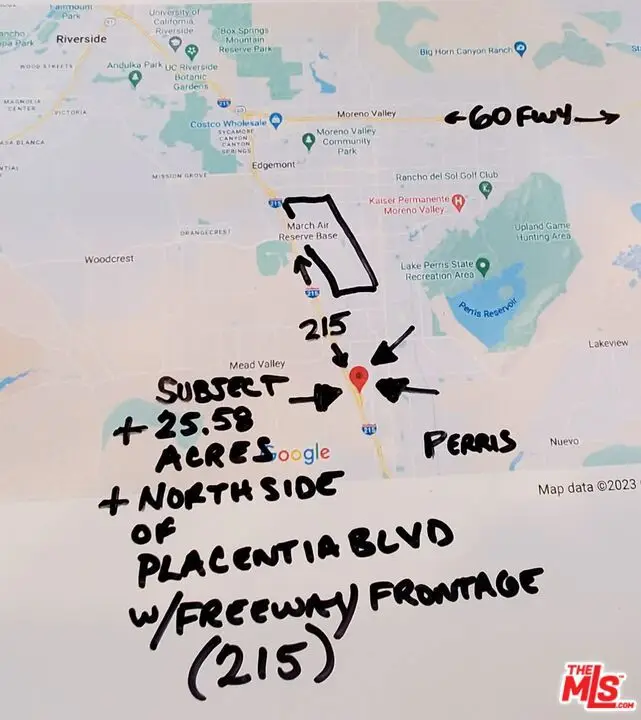 Fairmount
Park
University of
California,
Riverside
Box Springs
Mountain
Reserve Park
Riverside
Big Horn Canyon Ranch
Andulka Park
UC Riverside
Botanic
Gardens
WOOD STREETS
MAGNOLIA
CENTER
VICTORIA
215
Costco Wholesale
Moreno Valley
← 60 FWY →
SYCAMORE
CANYON
CANYON
SPRINGS
Moreno Valley
Community
Park
CASA BLANCA
Edgemont
MISSION GROVE
Rancho del Sol Golf Club
Kaiser Permanente
Moreno Valley
215
ORANGECREST
March Air
Reserve Base
Upland Game
Hunting Area
Woodcrest
Lake Perris State
Recreation Area
215
Perris Reservoir
215
Lakeview
Mead Valley
SUBJECT
+ 25.58
ACRES
215
PERRIS
Nuevo
Google
+ NORTH SIDE
Map data ©2023
OF
PLACENTIA BLVD
W/FREEWAY FRONTAGE
(215)
THE
MLS™
.COM